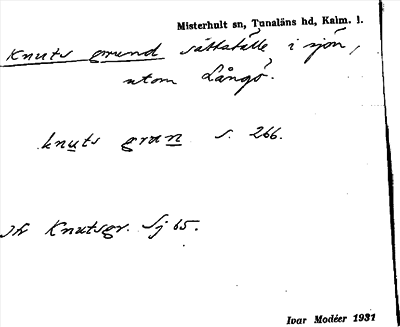 Misterhult sn, Tunaläns hd, Kalm. l.
Knuts grund sättställe i sjön,
utom Långö.
knuts gran s. 266.
Jfr Knutsgr. Sj 65.
Ivar Modéer 1931